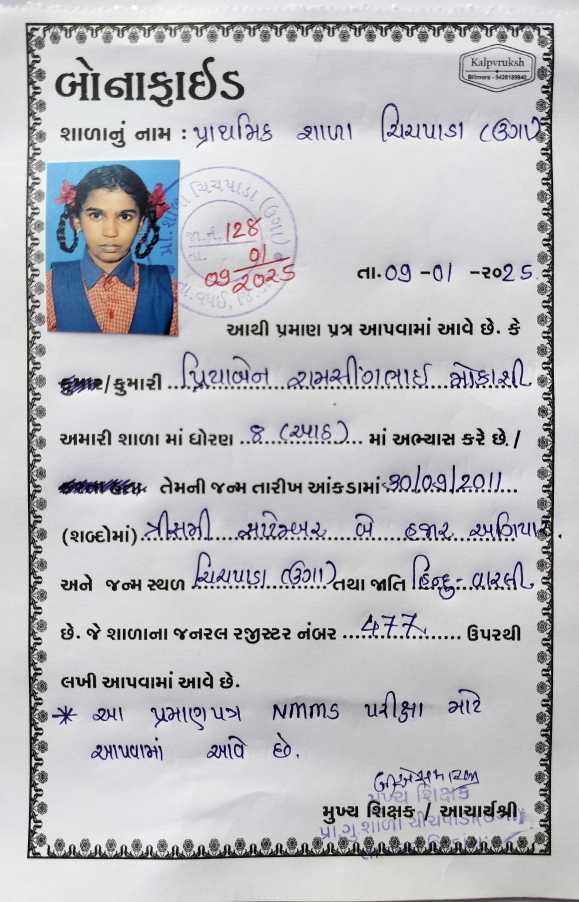 Kalpvruksh
બોનાફાઈડ
શાળાનું નામ : પ્રાથમિક શાળા ચિચપાડા (ઉગા)
ચિચપાડા (ઉગા)
જા.નં. 128
તા. 09/01/2025
તા.09 -01 -૨૦25
આથી પ્રમાણ પત્ર આપવામાં આવે છે. કે
કુમાર/કુમારી પ્રિયાબેન રામસીંગભાઈ મોકાશી
અમારી શાળા માં ધોરણ 8 (આઠ) માં અભ્યાસ કરે છે. /
તેમની જન્મ તારીખ આંકડામાં 30/09/2011
(શબ્દોમાં) ત્રીસમી સપ્ટેમ્બર બે હજાર અગિયાર
અને જન્મ સ્થળ ચિચપાડા (ઉગા) તથા જાતિ હિન્દુ - વારલી
છે. જે શાળાના જનરલ રજીસ્ટર નંબર 477 ઉપરથી
લખી આપવામાં આવે છે.
* આ પ્રમાણપત્ર NMMS પરીક્ષા માટે
આપવામાં આવે છે.
મુખ્ય શિક્ષક
મુખ્ય શિક્ષક / આચાર્યશ્રી